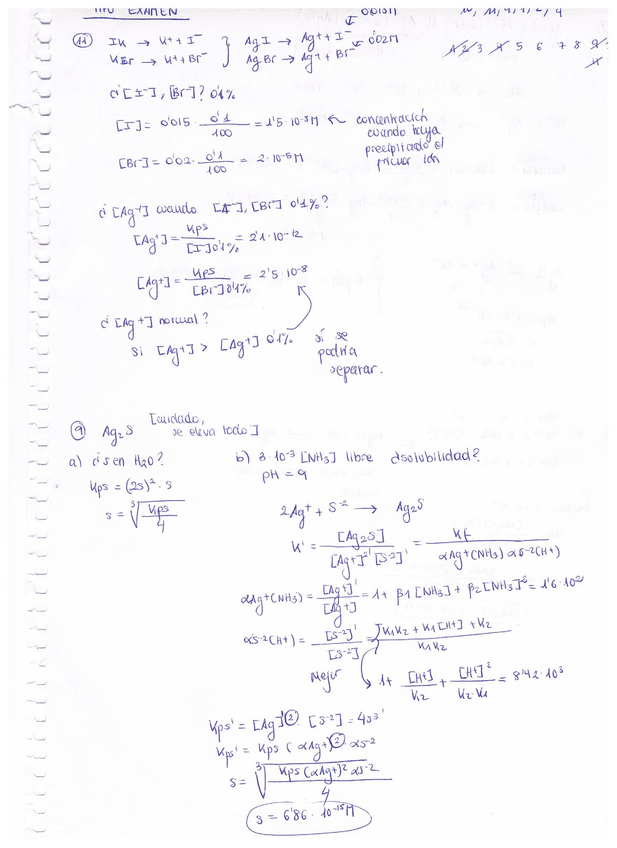 TIPO EXAMEN
0'015M
10, 11, 9, 7, 2, 4
11 IK → K⁺ + I⁻ } AgI → Ag⁺ + I⁻
KBr → K⁺ + Br⁻ } AgBr → Ag⁺ + Br⁻ 0'02M
1 2 3 4 5 6 7 8 9
11
¿[I⁻], [Br⁻]? 0'1%
[I⁻] = 0'015 · 0'1/100 = 1'5 · 10⁻⁵M ← concentración
cuando haya
precipitado el
primer ion
[Br⁻] = 0'02 · 0'1/100 = 2 · 10⁻⁵M
¿[Ag⁺] cuando [I⁻], [Br⁻] 0'1%?
[Ag⁺] = Kps/[I⁻]0'1% = 2'1 · 10⁻¹²
[Ag⁺] = Kps/[Br⁻]0'1% = 2'5 · 10⁻⁸
¿[Ag⁺] normal?
Si [Ag⁺] > [Ag⁺] 0'1% sí se
podría
separar.
9 Ag₂S [cuidado,
se eleva todo]
a) ¿s en H₂O?
Kps = (2s)² · s
s = ∛(Kps/4)
b) 3·10⁻³ [NH₃] libre ¿solubilidad?
pH = 9
2Ag⁺ + S⁻² → Ag₂S
K' = [Ag₂S]/[Ag⁺]²' [S⁻²]' = Kf/αAg⁺(NH₃) αS⁻²(H⁺)
αAg⁺(NH₃) = [Ag⁺]'/[Ag⁺] = 1 + β1[NH₃] + β2[NH₃]² = 1'6·10²
αS⁻²(H⁺) = [S⁻²]'/[S⁻²] = K1K2 + K1[H⁺] + K2/K1K2
Mejor → 1 + [H⁺]/K2 + [H⁺]²/K2·K1 = 8'42·10³
Kps' = [Ag⁺]'² [S⁻²] = 4s³'
Kps' = Kps (αAg⁺)² · αS⁻²
s = ∛(Kps (αAg⁺)² αS⁻²/4)
s = 6'86 · 10⁻¹⁵M